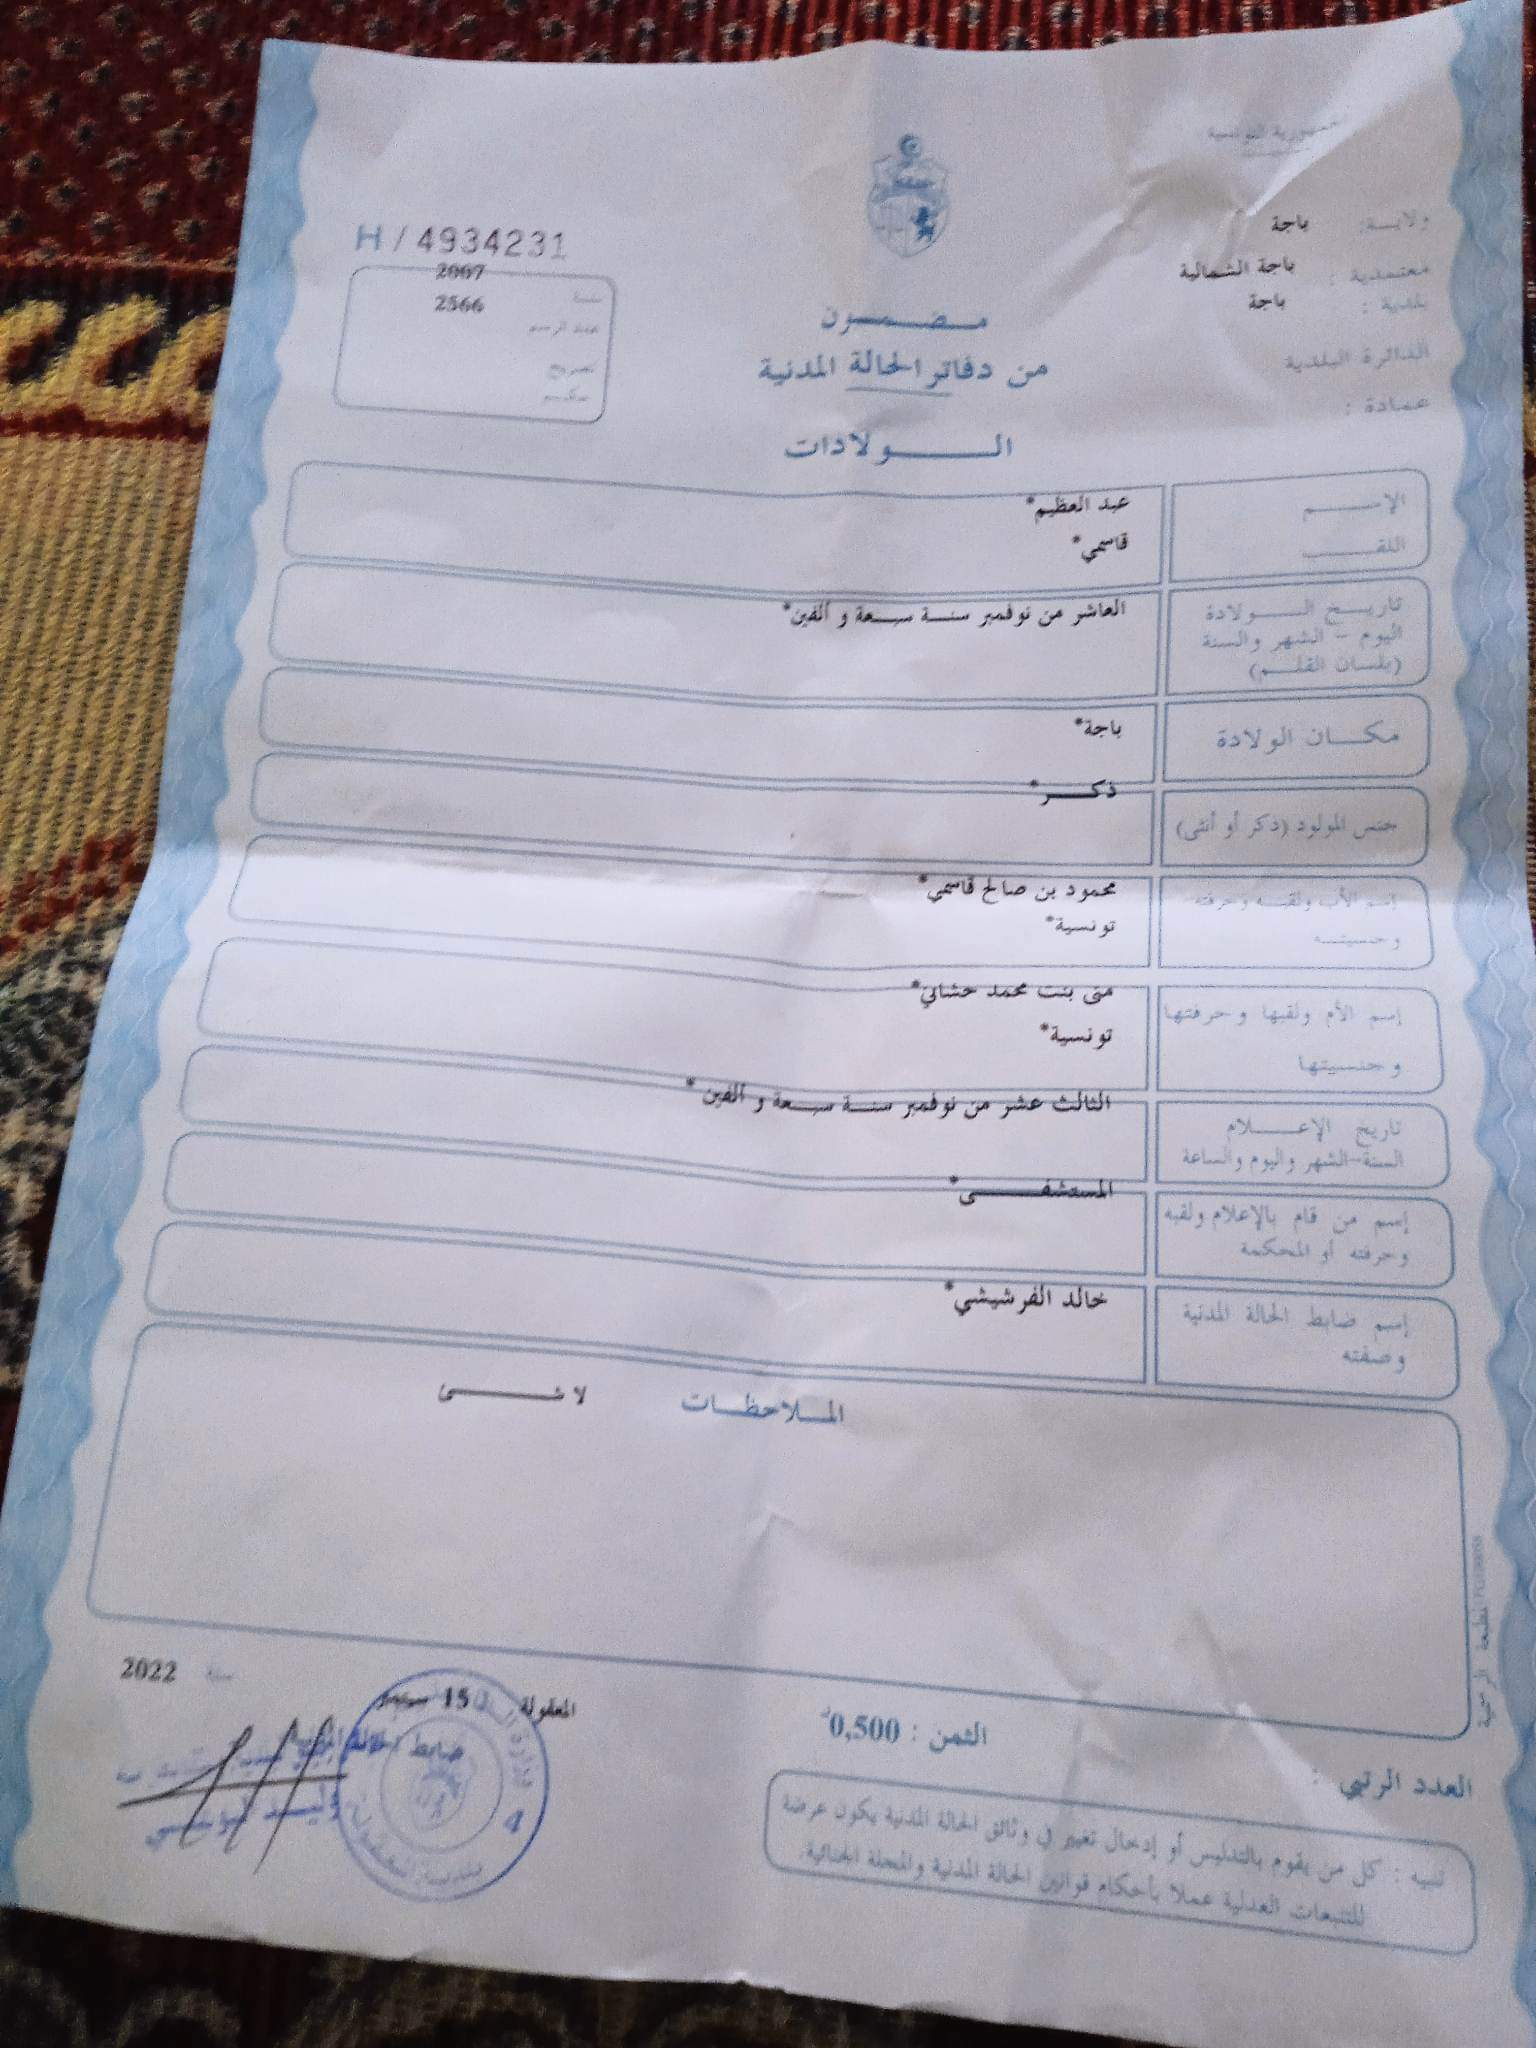 الجمهورية التونسية
ولايـــة: باجة
معتمدية : باجة الشمالية
بلدية : باجة
الدائرة البلدية
عمادة :
H / 4934231
سنة 2007
عدد الرسم 2566
تصريح
حكم
مـــضـــمـــون
من دفاتر الحالة المدنية
الـــولادات
الإســـم عبد العظيم*
اللقـــب قاسمي*
تاريـــخ الـــولادة العاشر من نوفمبر سنة سبعة و ألفين*
اليوم – الشهر والسنة
(بلسان القلـــم)
مكـــان الولادة باجة*
جنس المولود (ذكر أو أنثى) ذكـــر*
إسم الأب ولقبـــه وحرفته محمود بن صالح قاسمي*
وجنسيتـــه تونسية*
إسم الأم ولقبها وحرفتها منى بنت محمد حشاني*
وجنسيتها تونسية*
تاريخ الإعـــلام الثالث عشر من نوفمبر سنة سبعة و ألفين*
السنة-الشهر واليوم والساعة
إسم من قام بالإعلام ولقبه المستشفـــى*
وحرفته أو المحكمة
إسم ضابط الحالة المدنية خالد الفرشيشي*
وصفته
المـــلاحظـــات لا شـــى
المطبعة الرسمية
المعقولة 15 سبتمبر سنة 2022
ضابط الحالة المدنية
الثمن : 0,500د
العدد الرتبي :
تنبيه : كل من يقوم بالتدليس أو إدخال تغيير في وثائق الحالة المدنية يكون عرضة
للتتبعات العدلية عملا بأحكام قوانين الحالة المدنية والمجلة الجنائية.
4